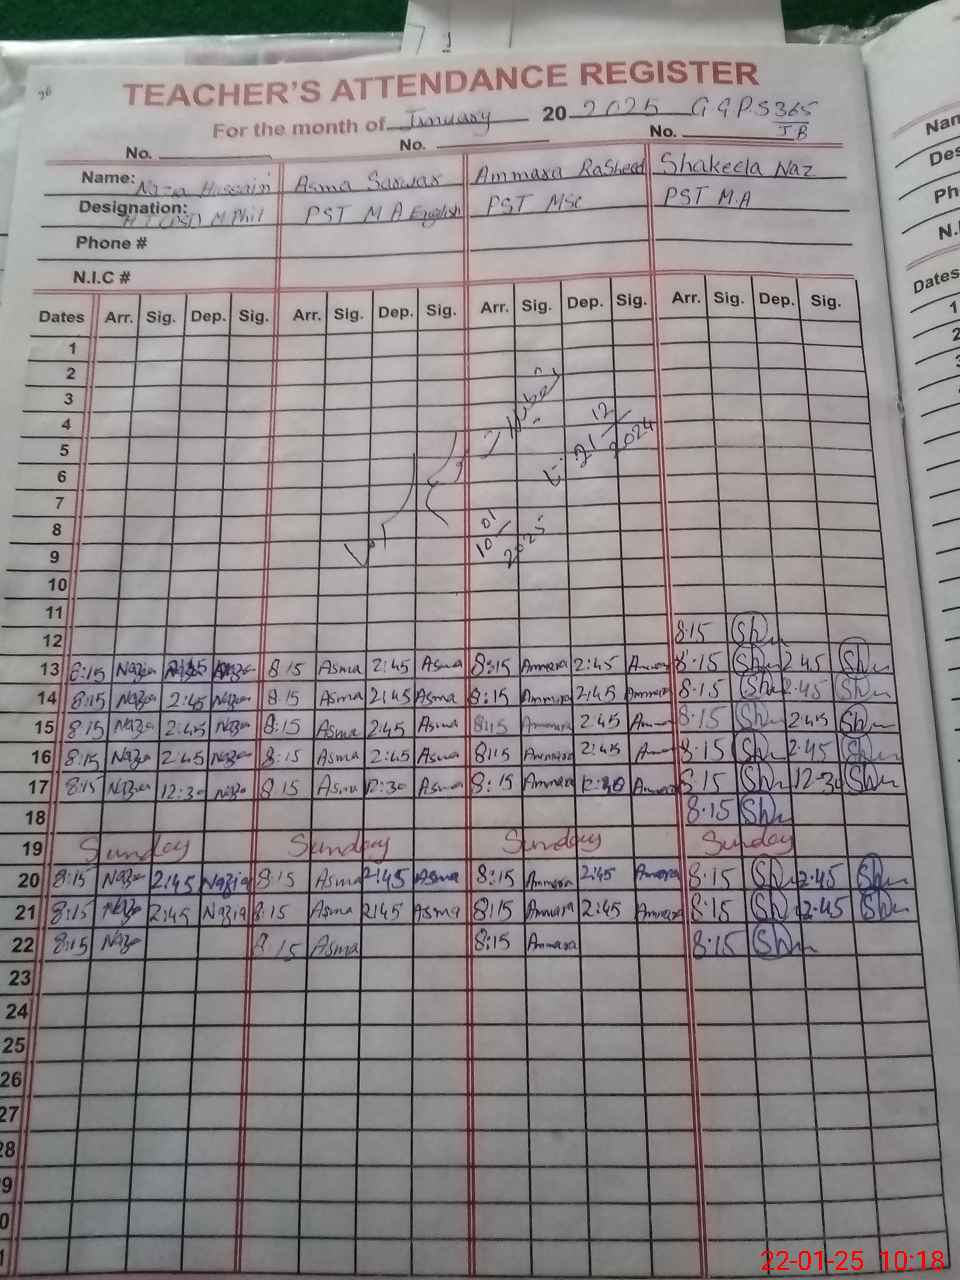 TEACHER'S ATTENDANCE REGISTER
For the month of January 20 2025 G G P S 365
J B
No. No. No.
Name: Nazia Hussain Asma Sarwar Ammara Rasheed Shakeela Naz
Designation: M.Phil PST M A English PST MSc PST M.A
Phone #
N.I.C #
Dates Arr. Sig. Dep. Sig. Arr. Sig. Dep. Sig. Arr. Sig. Dep. Sig. Arr. Sig. Dep. Sig.
1
2
3
4
5
6
7
8
9
10
11
21 12 2024
10 01 2025
12 8:15 Sh
13 8:15 Nazia 2:45 Nazia 8:15 Asma 2:45 Asma 8:15 Ammara 2:45 Ammara 8:15 Sh 2:45 Sh
14 8:15 Nazia 2:45 Nazia 8:15 Asma 2:45 Asma 8:15 Ammara 2:45 Ammara 8:15 Sh 2:45 Sh
15 8:15 Nazia 2:45 Nazia 8:15 Asma 2:45 Asma 8:15 Ammara 2:45 Am 8:15 Sh 2:45 Sh
16 8:15 Nazia 2:45 Nazia 8:15 Asma 2:45 Asma 8:15 Ammara 2:45 Am 8:15 Sh 2:45 Sh
17 8:15 Nazia 12:30 Nazia 8:15 Asma 12:30 Asma 8:15 Ammara 12:30 Ammara 8:15 Sh 12:30 Sh
18 8:15 Sh
19 Sunday Sunday Sunday Sunday
20 8:15 Nazia 2:45 Nazia 8:15 Asma 2:45 Asma 8:15 Ammara 2:45 Ammara 8:15 Sh 2:45 Sh
21 8:15 Nazia 2:45 Nazia 8:15 Asma 2:45 Asma 8:15 Ammara 2:45 Ammara 8:15 Sh 2:45 Sh
22 8:15 Nazia 8:15 Asma 8:15 Ammara 8:15 Sh
23
24
25
26
27
28
9
0
1
Nam
Des
Ph
N.I
Dates
1
2
3
4
22-01-25 10:18